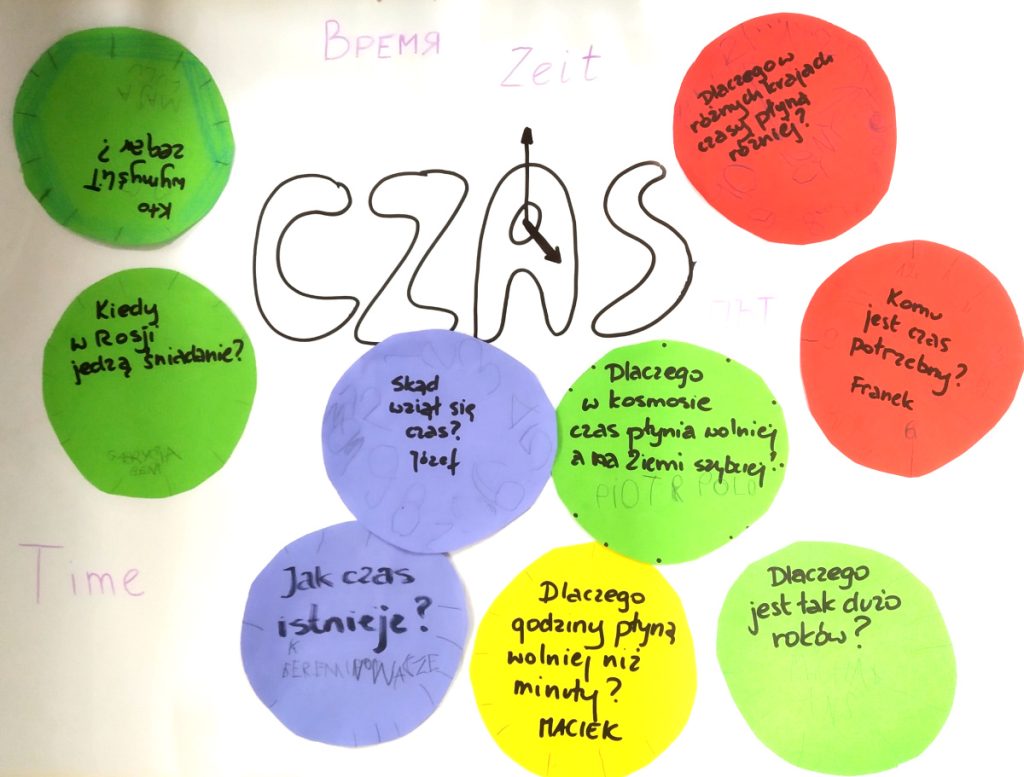 ВРЕМЯ
Zeit
CZAS
Time
Kto
wymyślił
zegar?
Dlaczego w
różnych krajach
czasy płyną
różniej?
Kiedy
w Rosji
jedzą śniadanie?
Komu
jest czas
potrzebny?
Franek
6
Skąd
wziął się
czas?
Józef
Dlaczego
w kosmosie
czas płynia wolniej
a na Ziemi szybciej?
PIOTR POLO
Jak czas
istnieje?
K
Dlaczego
godziny płyną
wolniej niż
minuty?
MACIEK
Dlaczego
jest tak dużo
roków?